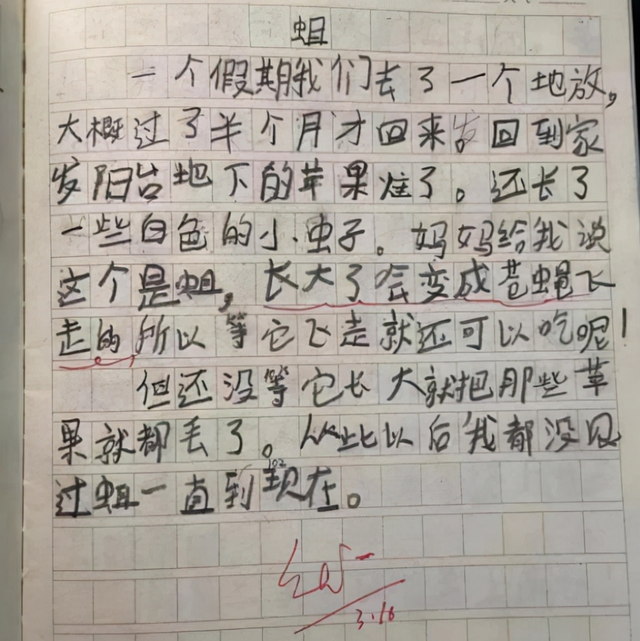 蛆
一个假期我们去了一个地放，
大概过了半个月才回来岁回到家
发阳台地下的苹果烂了。还长了
一些白色的小虫子。妈妈给我说
这个是蛆，长大了会变成苍蝇飞
走的，所以等它飞走就还可以吃呢！
但还没等它长大就把那些苹
果就都丢了。从此以后我都没见
过蛆一直到现在。
3.16